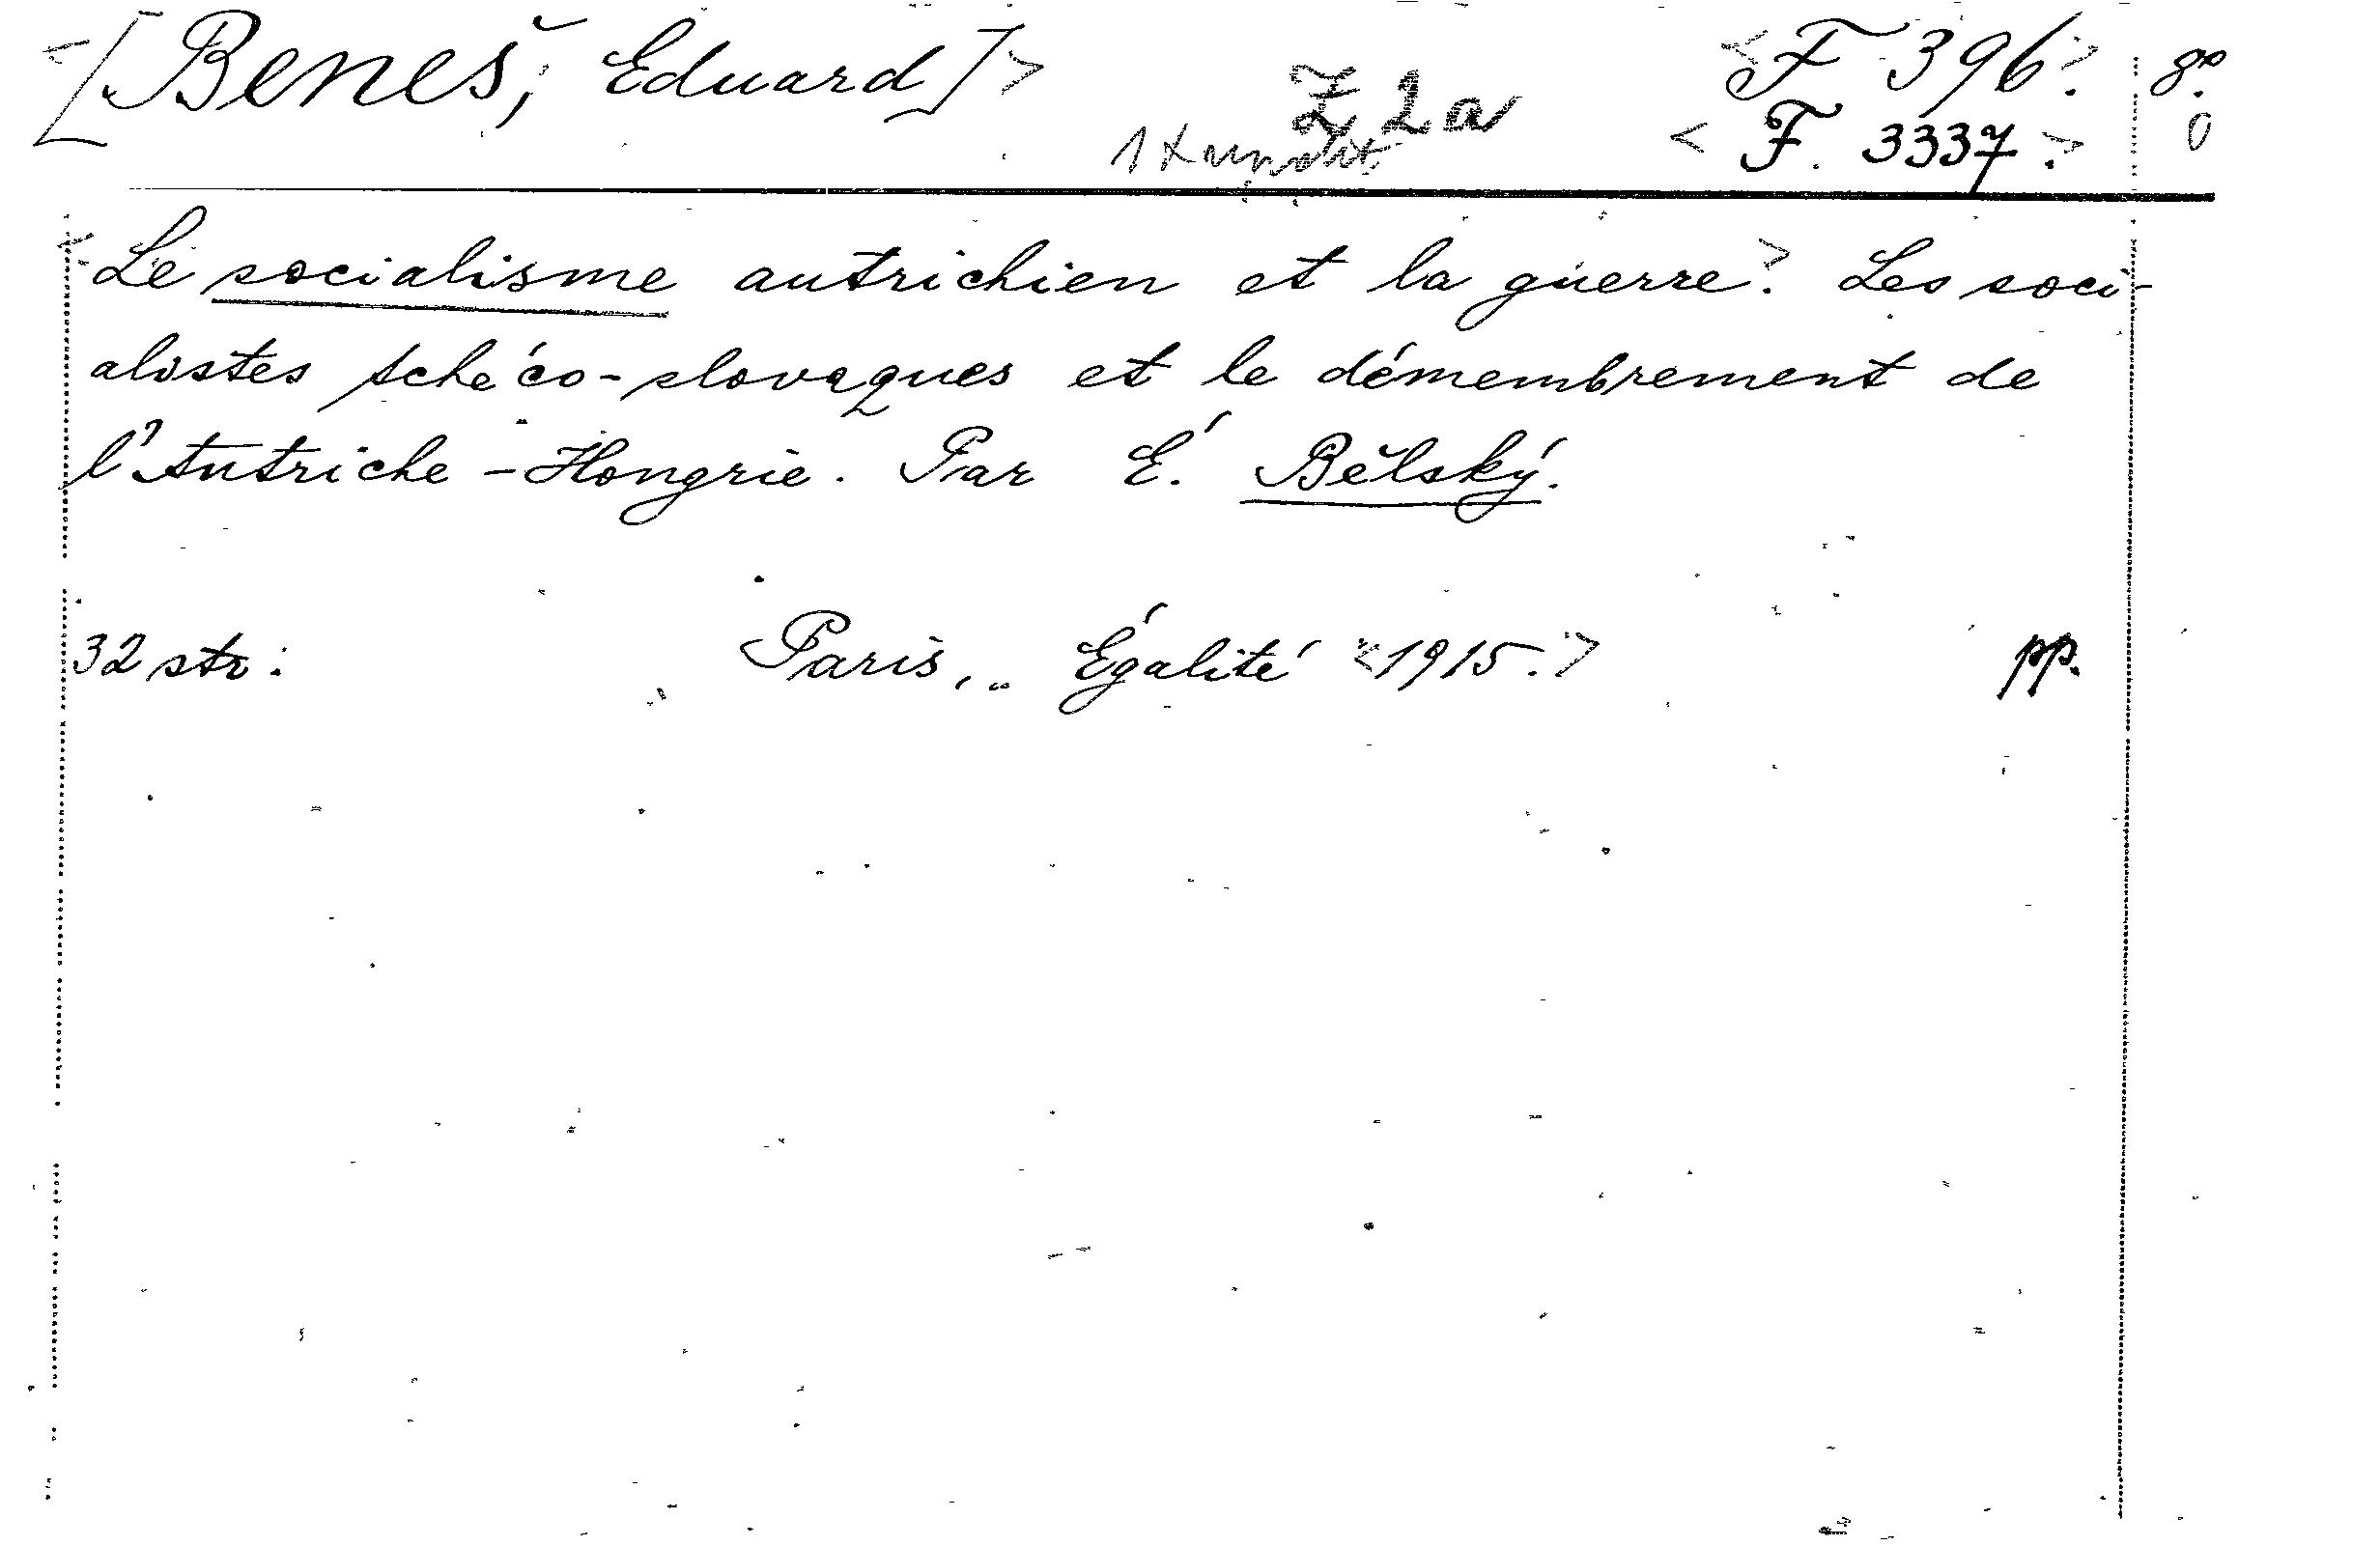 <[Beneš, Eduard]> Z 2a <F 396.> 8º.
1x <F. 3337.> 0
<Le socialisme autrichien et la guerre.> Les soci-
alistes tchéco-slovaques et le démembrement de
l'Autriche-Hongrie. Par É. Bělský.
32 str. Paris, „Égalité" <1915.> pp.